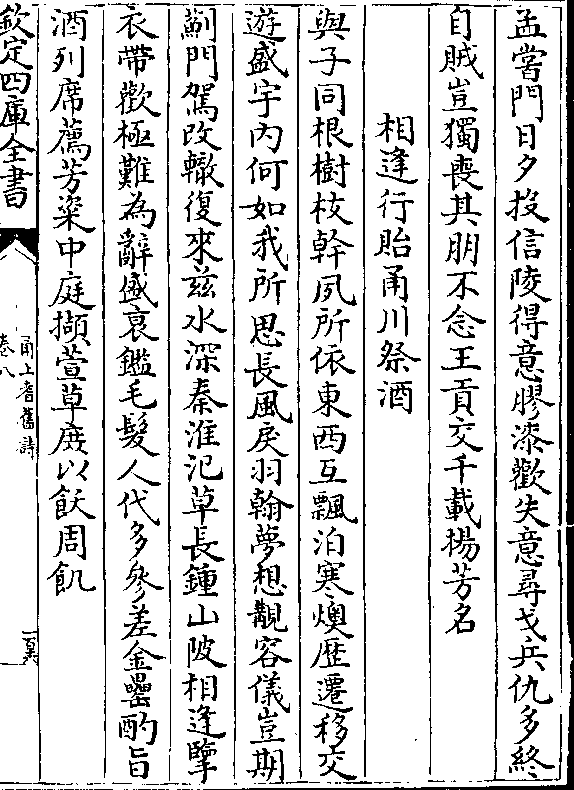 孟嘗門日夕投信陵得意膠漆歡失意尋戈兵仇多終
自賊豈獨喪其朋不念王貢交千載揚芳名
相逢行貽甬川祭酒
與子同根樹枝幹夙所依東西互飄泊寒燠歴遷移交
遊盛宇内何如我所思長風戾羽翰夢想覿容儀豈期
薊門駕改轍復來兹水深秦淮汜草長鍾山陂相逢擥
衣帶歡極難為辭盛衰鑑毛髮人代多參差金罍酌旨
酒列席薦芳粢中庭擷萱草庻以飫周飢
欽定四庫全書
甬上耆舊詩
卷八